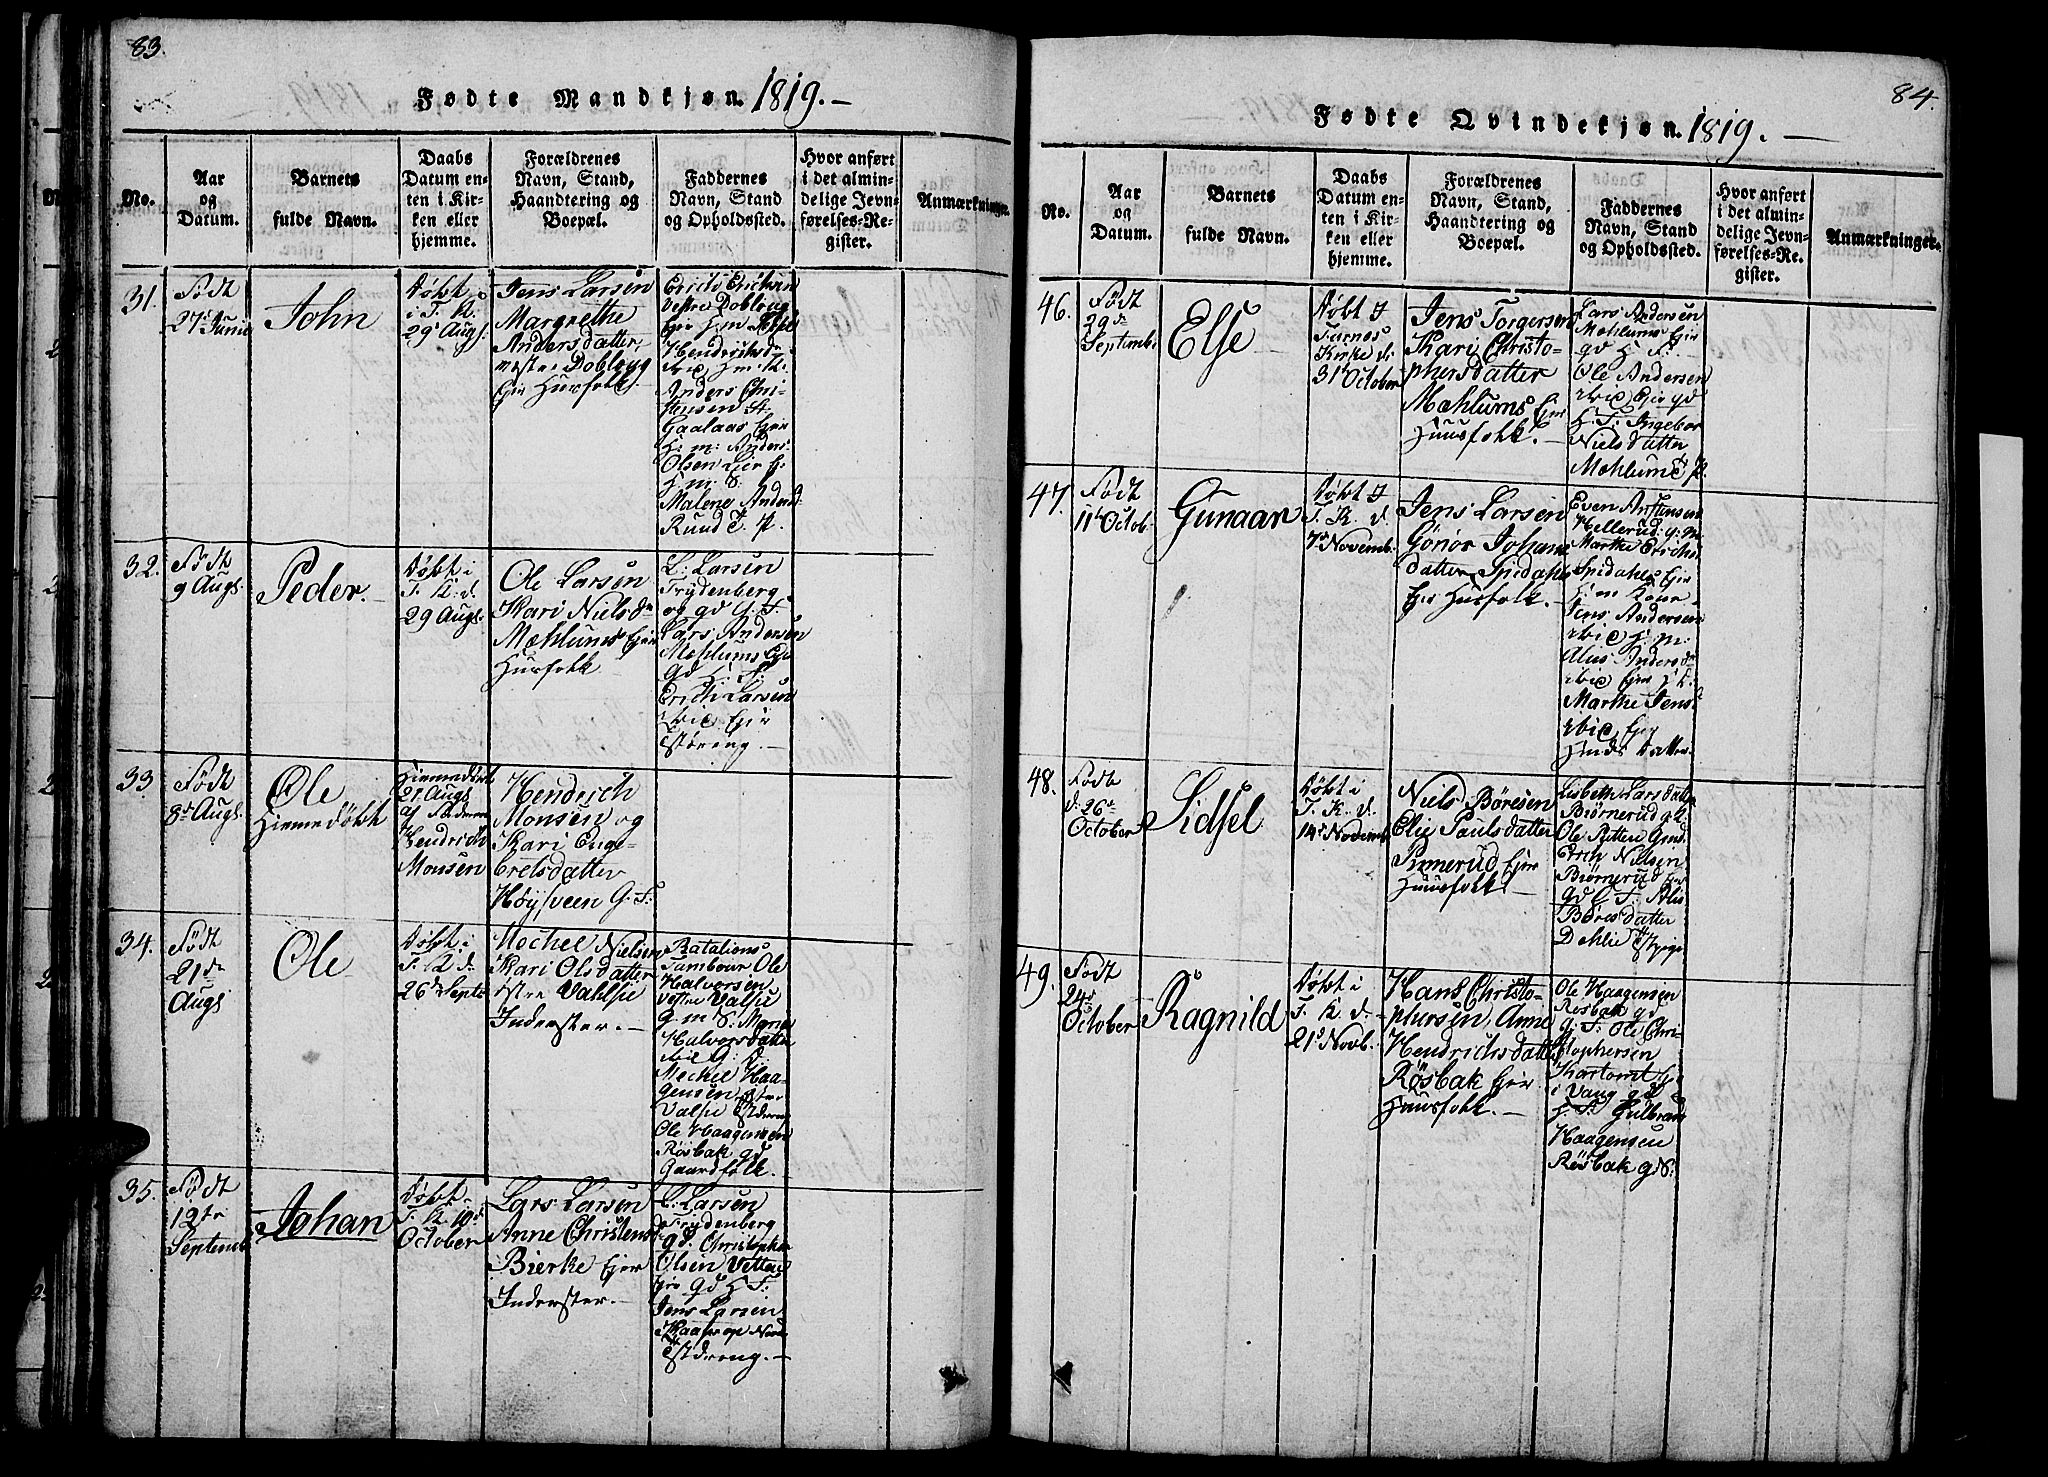 83.
Fødte Mandkjøn. 1819. —
No.
Aar
og
Datum.
Barnets
fulde Navn.
Daabs
Datum en-
ten i Kir-
ken eller
hjemme.
Forældrenes
Navn, Stand,
Haandtering og
Boepæl.
Faddernes
Navn, Stand
og Opholdssted.
Hvor anført
i det almin-
delige Jevn-
førelses-Re-
gister.
Anmærkninger.
31.
Født
27 Junie
John
Døbt
i F. K.
29 Augs.
Jens Larsen
Margrethe
Andersdatter
Dobloug
Eje Huusfolk.
Erich Erichsen
Vestre Dobloug
Anders Chri-
stensen
Gaalaas Eje
H: m: Anders
Olsen
H: m: S:
Malene Andersd
Ruud T. P.
32.
Født
9 Augs.
Peder. —
Døbt i
F. K. d.
29 Augs.
Ole Larsen
Kari Nielsdr
Mæhlums Eje
Husfolk
L: Larsen
Frydenberg
og gd G. F.
Lars Andersen
Mæhlums Eje
gd H: F:
Erich Larsen
ibid Ejer
Tstdreng. —
33.
Født
8de Augs.
Ole
Hiemedøbt
Hiemedøbt
21 Augs
af Faderen
Hendrich
Monsen
Hendrich
Monsen og
Kari Enge-
bretsdatter
Høysveen G. F:
34.
Født
21de
Augs
Ole
Døbt i
F. K. d.
26de Septr
Mechel Nielsen
Kari Olsdatter
østre Vahlsie
Inderster. —
Batalions
Tambour Ole
Halvorsen
Vestre Valsie
G. m S. Marie
Halvorsdatter
ibid G: d:
Mechel Haa-
gensen østre
Valsie Tstdreng
Ole Haagensen
Røsbak gd
Gaardfolk.
35.
Født
12te
Septemb
Johan
Døbt
F. K. 10de
October
Lars Larsen
Anne Christensd
Bierke Ejer
Inderster. —
L: Larsen
Frydenberg
gd. Christopher
Olsen Vetten
Eje gd H F:
Jens Larsen
Tstdreng. —
84.
Fødte Qvindekjøn. 1819. —
No.
Aar
og
Datum.
Barnets
fulde Navn.
Daabs
Datum en-
ten i Kir-
ken eller
hjemme.
Forældrenes
Navn, Stand,
Haandtering og
Boepæl.
Faddernes
Navn, Stand
og Opholdssted.
Hvor anført
i det almin-
delige Jevn-
førelses-Re-
gister.
Anmærkninger.
46.
Født
29de
Septembr
Else
Døbt I
Furnes
Kirke d.
31te October
Jens Torgersen
Kari Christo-
phersdatter
Mæhlums Ejer
Huusfolk. —
Lars Andersen
Mæhlums Eje
gd H F:
Ole Andersen
ibid Eje gd
H. F: Ingebor
Nielsdatter
Mæhlum T P.
47.
Født
11te Octob.
Gunaar
Døbt I
F. K. d.
7de Novemb.
Jens Larsen
Gønør Johans
datter, Spidahls
Ejer Husfolk. —
Even Amundsen
Hellerud g: m
Marthe Erichs
Spidahls Ejer
H: m Kone
Jens Andersen
ibid H: m:
Alus Andersdr
ibid Ejer H K:
Marthe Jens
ibid Ejer
Hmds Datter.
48.
Født
d. 26de
October
Sidsel
Døbt i
F. K. d.
14de Novemb
Niels Børesen
Elie Paulsdatter
Pinnerud Ejer
Huusfolk —
Lisbeth Larsdatter
Biørnerud g. K
Ole
Erich Nielsen
Biørnerud Ejer
gd
Børesdatter
Dehlie T Pige
49.
Født
24de
October
Ragnild
Døbt i
F. K. d.
21de Novb.
Hans Christo-
phersen, Anne
Hendrichsdatter
Røsbak Ejer
Huusfolk. —
Ole Haagensen
Røsbak gd
G. F: Ole Chri-
stophersen
i Vang gd
H. F: Gulbran
Haagensen
Røsbak g. S: